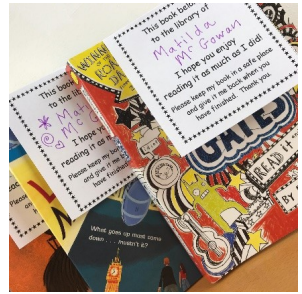 This book belo
to the library of
Matilda
Mc Gowan
I hope you enjoy
reading it as much as I did!
Please keep my book in a safe place
and give it me back when you
have finished. Thank you.
This book
to the lib
Ma
Mc G
I hope y
reading it as
Please keep my bo
and give it me b
have finishe
This
to the
I ho
reading
Please
and
GATES
READ IT
BY
What goes up must come
down . . . mustn't it?